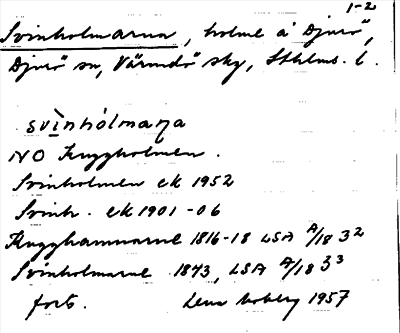 1-2
Svinholmarna, holme å Djurö,
Djurö sn, Värmdö sky, Sthlms. l.
svìnhólmaṇa
NO Kruggholmen.
Svinholmen ek 1952
Svinh. ek 1901-06
Krugghamnarne 1816-18 LSA A/18 32
Svinholmarne 1873, LSA A/18 33
forts. Lena Moberg 1957